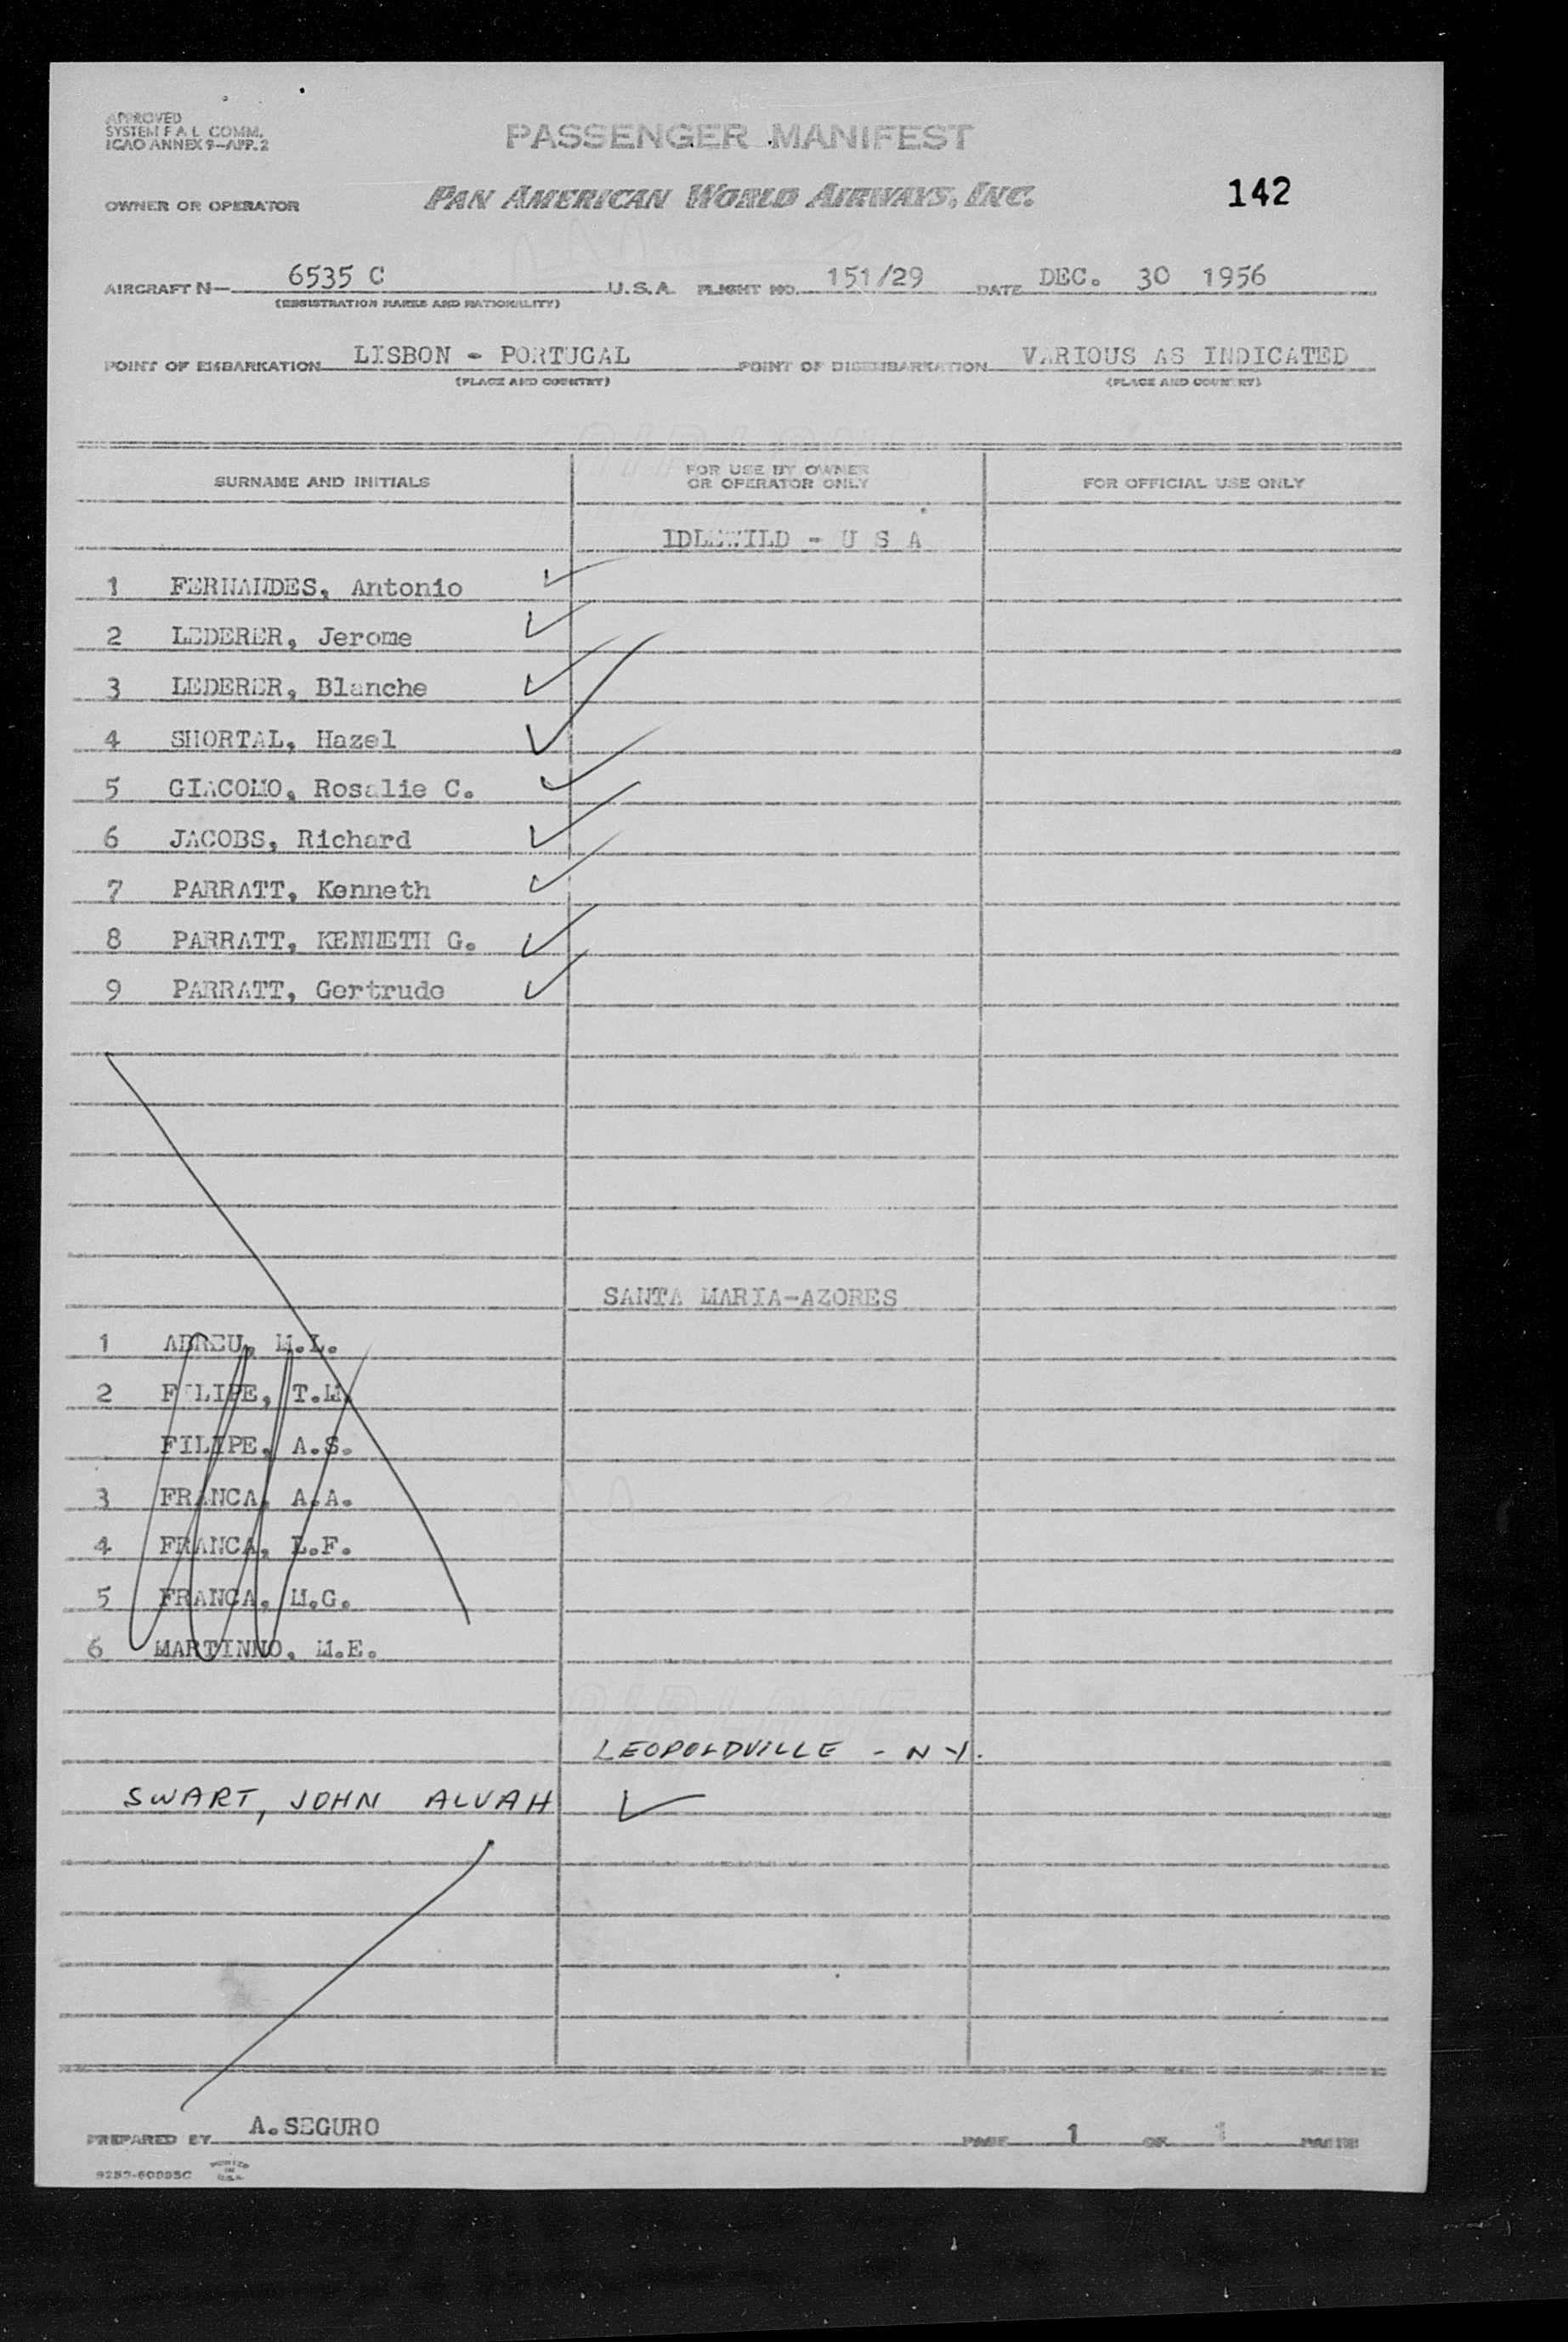 APPROVED
SYSTEM F A L COMM.
ICAO ANNEX 9-APP. 2
PASSENGER MANIFEST
OWNER OR OPERATOR PAN AMERICAN WORLD AIRWAYS, INC. 142
AIRCRAFT N— 6535 C U.S.A. FLIGHT NO. 151/29 DATE DEC. 30 1956
(REGISTRATION MARKS AND NATIONALITY)
POINT OF EMBARKATION LISBON - PORTUGAL POINT OF DISEMBARKATION VARIOUS AS INDICATED
(PLACE AND COUNTRY) (PLACE AND COUNTRY)
SURNAME AND INITIALS FOR USE BY OWNER OR OPERATOR ONLY FOR OFFICIAL USE ONLY
IDLEWILD - U S A
1 FERNANDES, Antonio
2 LEDERER, Jerome
3 LEDERER, Blanche
4 SHORTAL, Hazel
5 GIACOMO, Rosalie C.
6 JACOBS, Richard
7 PARRATT, Kenneth
8 PARRATT, KENNETH G.
9 PARRATT, Gertrude
SANTA MARIA-AZORES
1 ABREU, M.L.
2 FILIPE, T.M.
FILIPE, A.S.
3 FRANCA, A.A.
4 FRANCA, L.F.
5 FRANCA, M.G.
6 MARTINHO, M.E.
LEOPOLDVILLE - NY.
SWART, JOHN ALVAH
PREPARED BY A.SEGURO PAGE 1 OF 1 PAGES
PRINTED
IN
U.S.A.